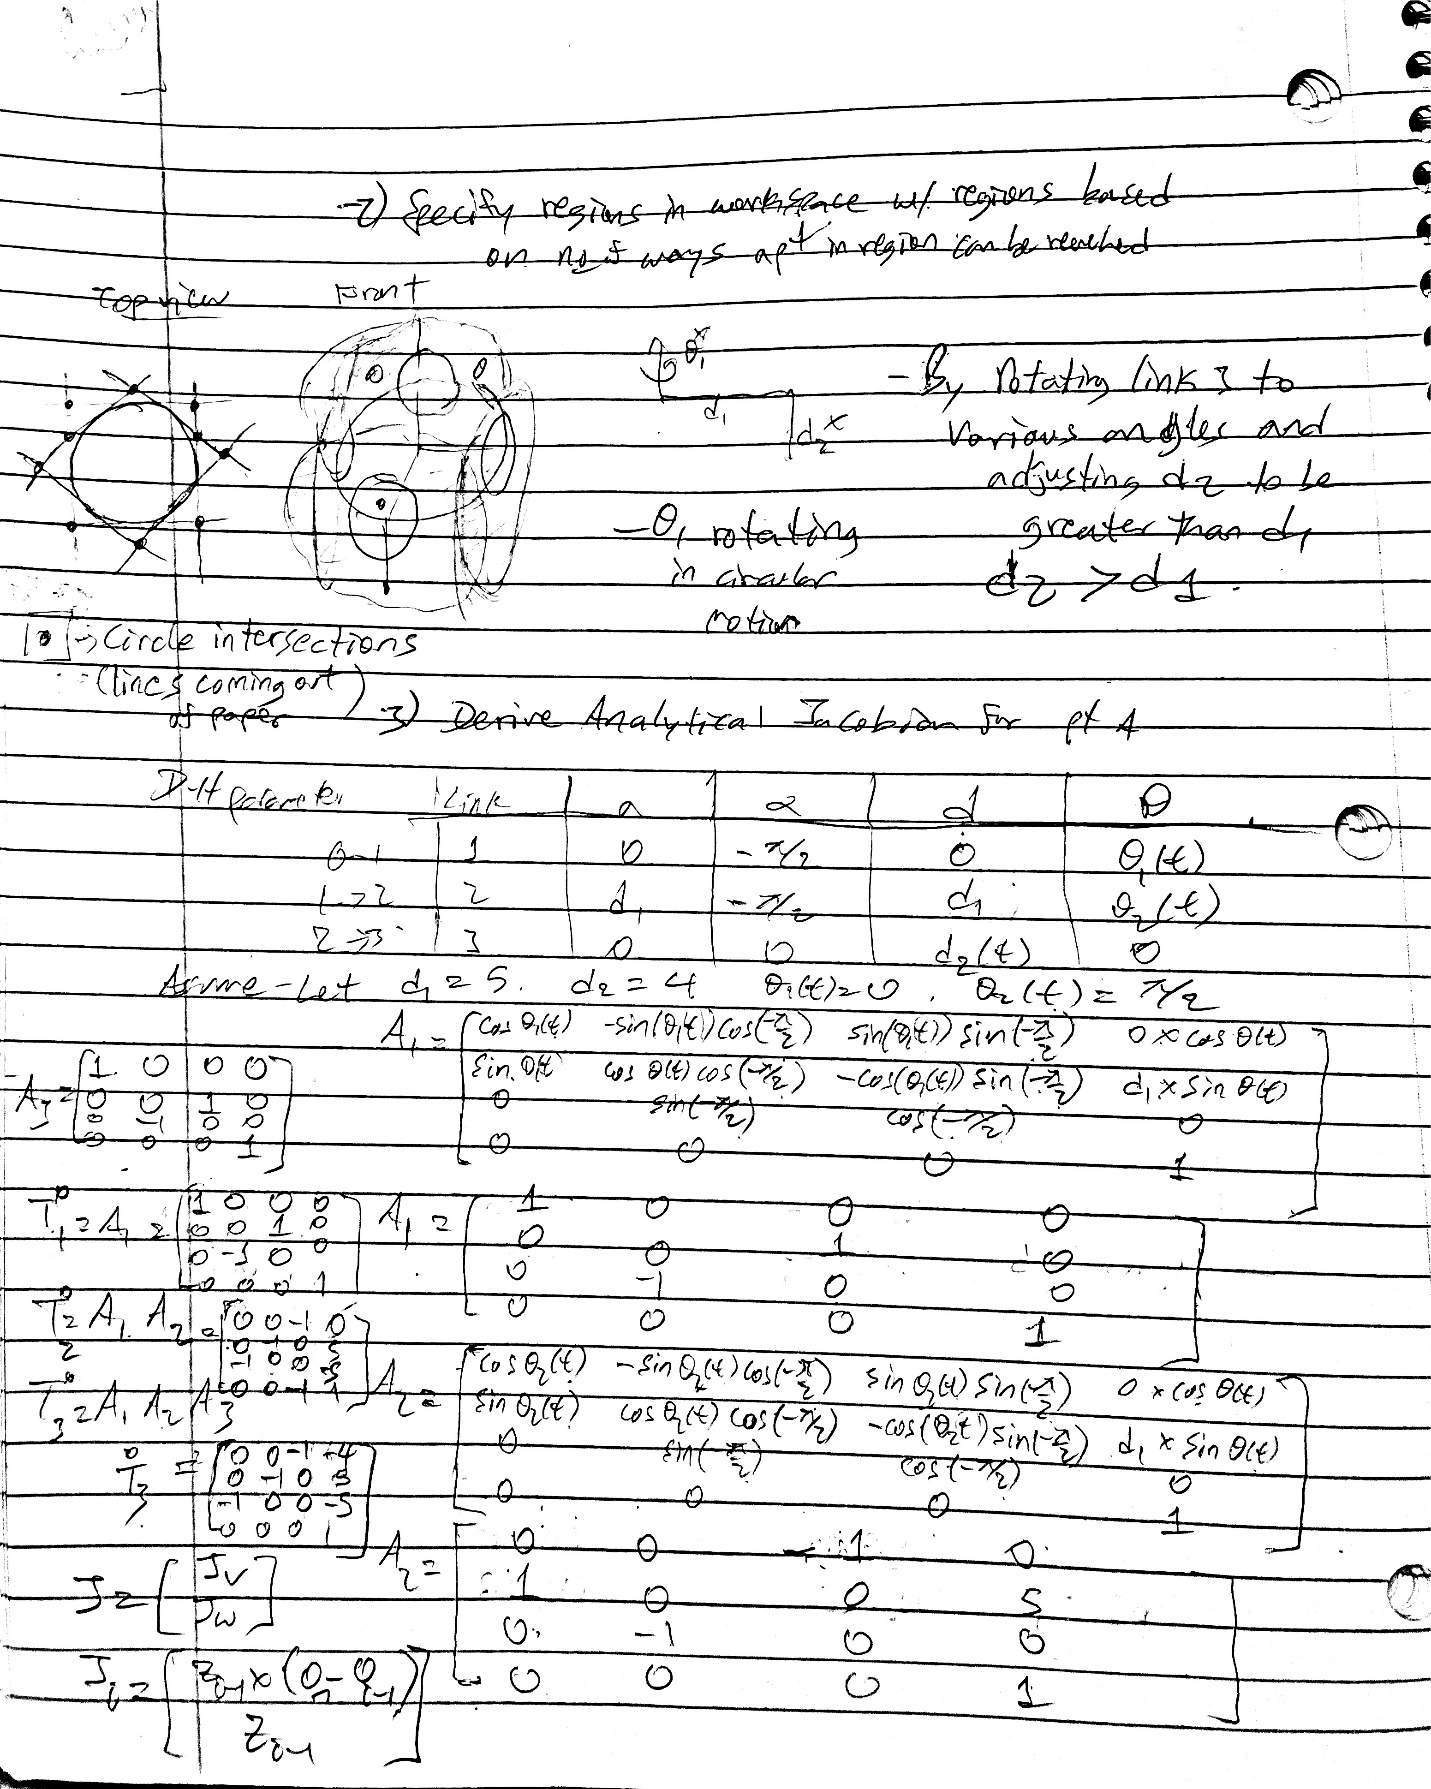 2) Specify regions in workspace w/ regions based
on no. of ways a pt in region can be reached
Top view
Front
θ₁*
d₁
d₂*
- By rotating link 3 to
various angles and
adjusting d2 to be
greater than d1
d2 > d1.
- θ₁ rotating
in circular
motion
[•] → Circle intersections
(lines coming out
of paper)
3) Derive Analytical Jacobian for pt A
D-H parameter | Link | a | α | d | θ
0-1 | 1 | 0 | -π/2 | 0 | θ₁(t)
1→2 | 2 | d₁ | -π/2 | d₁ | θ₂(t)
2→3 | 3 | 0 | 0 | d₂(t) | 0
Assume - Let d₁ = 5. d₂ = 4 θ₁(t)=0, θ₂(t) = π/2
A₁ = [cos θ₁(t) -sin(θ₁(t))cos(-π/2) sin(θ₁(t)) sin(-π/2) 0 × cos θ(t)
sin θ(t) cos θ(t) cos(-π/2) -cos(θ₁(t)) sin(-π/2) d₁ × sin θ(t)
0 sin(-π/2) cos(-π/2) 0
0 0 0 1]
A₃ = [1 0 0 0
0 0 1 0
0 -1 0 0
0 0 0 1]
T₁⁰ = A₁ = [1 0 0 0
0 0 1 0
0 -1 0 0
0 0 0 1]
A₁ = [1 0 0 0
0 0 1 0
0 -1 0 0
0 0 0 1]
T₂⁰ = A₁ A₂ = [0 0 -1 0
0 -1 0 5
-1 0 0 -5
0 0 -1 1]
A₂ = [cos θ₂(t) -sin θ₂(t) cos(-π/2) sin θ₂(t) sin(-π/2) 0 × cos θ(t)
sin θ₂(t) cos θ₂(t) cos(-π/2) -cos(θ₂t) sin(-π/2) d₁ × sin θ(t)
0 sin(-π/2) cos(-π/2) 0
0 0 0 1]
T₃⁰ = A₁ A₂ A₃
T₃⁰ = [0 0 -1 +4
0 -1 0 5
-1 0 0 -5
0 0 0 1]
A₂ = [0 0 -1 0
1 0 0 5
0 -1 0 0
0 0 0 1]
J = [Jv
Jw]
Ji = [Zi-1 × (On - Oi-1)
Zi-1]